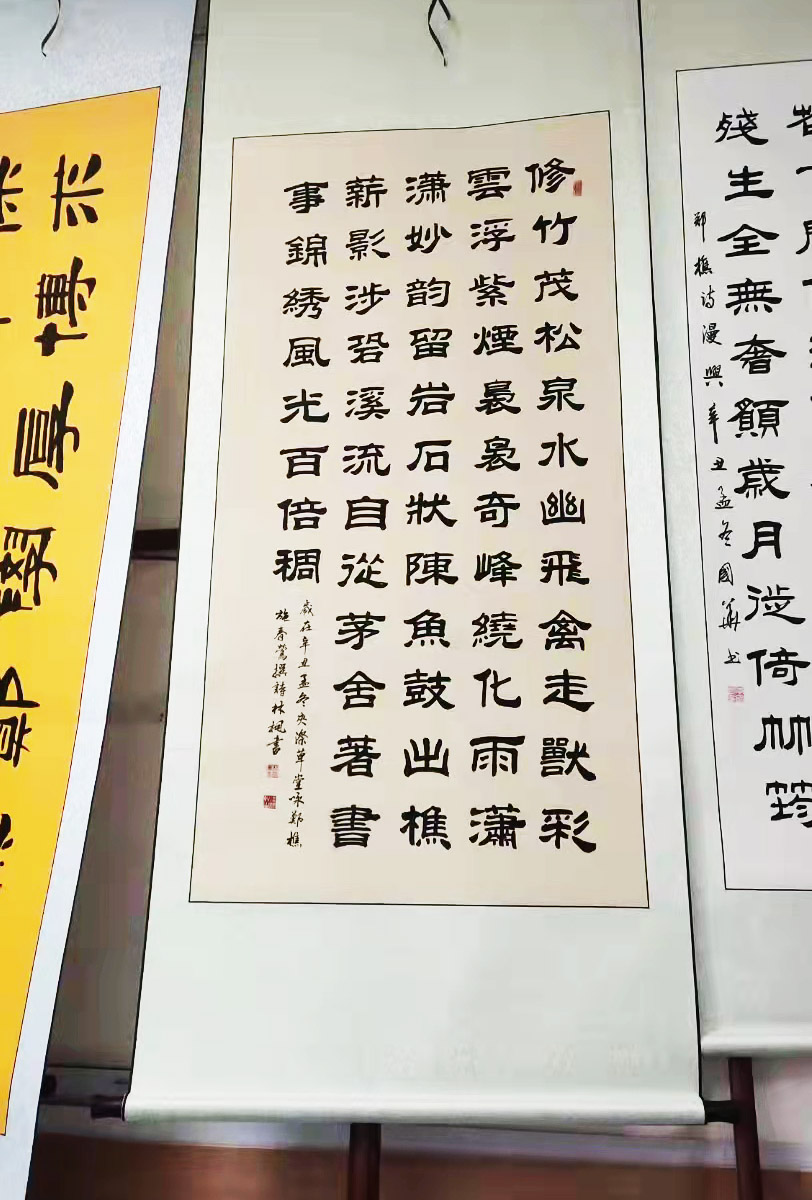 殘生全無奢願歲月徙倚竹筠
鄭樵诗漫興辛丑孟冬國華书
修竹茂松泉水幽飛禽走獸彩
雲浮紫煙裊裊奇峰繞化雨瀟
潇妙韵留岩石狀陳魚鼓出樵
薪影涉溪流自從茅舍著書
事錦綉風光百倍稠
歲在辛丑孟冬夾漈草堂咏鄭樵
施春鶯撰詩林楓書
博厚